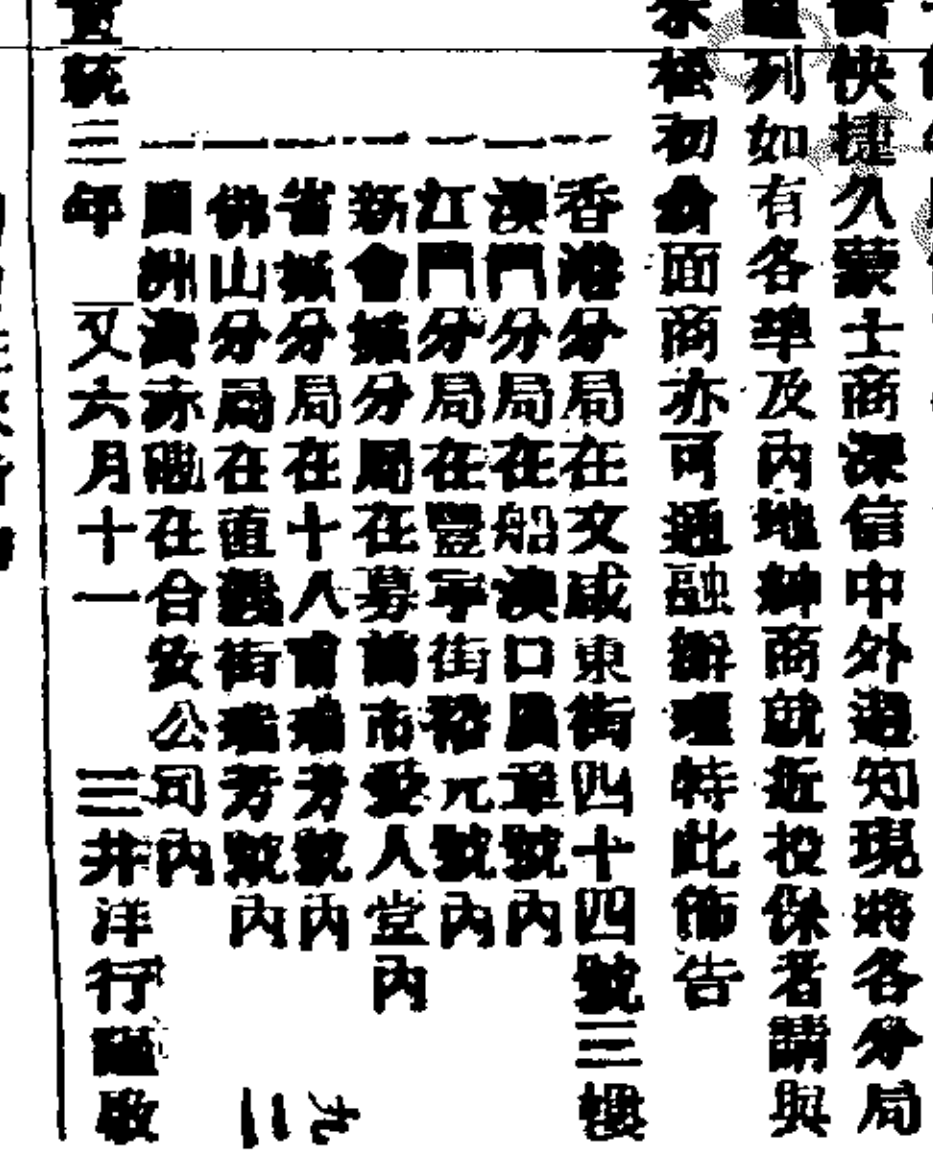 快捷久蒙士商深信中外週知現將各分局
列如有各埠及內地紳商就近投保者請與
松初公面商亦可通融辦理特此佈告
一香港分局在文咸東街四十四號三樓
一澳門分局在船澳口廣章號內
一江門分局在豐寧街裕元號內
一新會城分局在募前市愛人堂內
一省城分局在十八甫瑞芳號內
一佛山分局在直義街瑞芳號內
一廣州灣赤磡在合安公司內
宣統三年 又六月十一 三井洋行謹啟